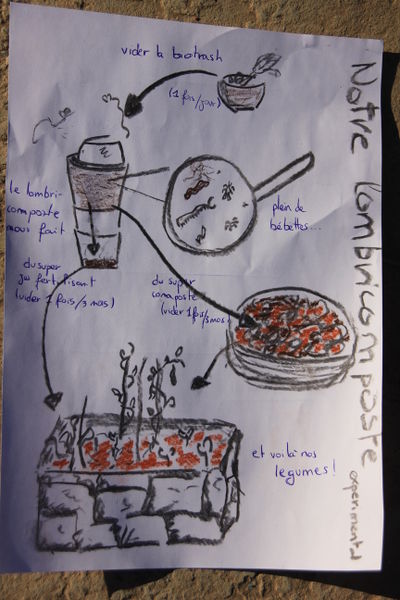 Notre lombricomposte
experimental
vider la biotrash
(1 fois/jour)
le lombri-
composte
nous fait
plein de
bébêttes...
du super
jus fertilisant
(vider 1 fois/3 mois)
du super
composte
(vider 1 fois/3 mois)
et voilà nos
légumes!